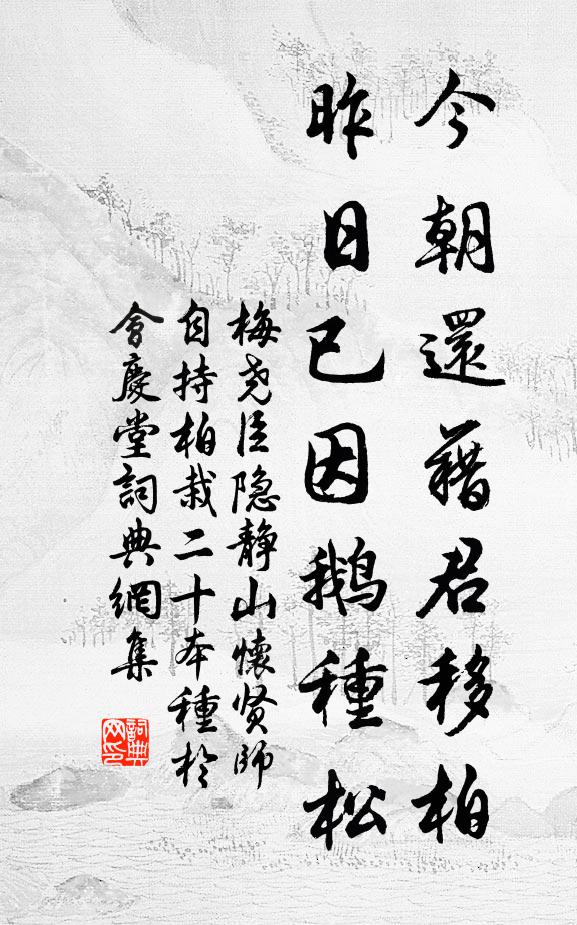 今朝還藉君移柏
昨日已因鵝種松
梅尧臣隐静山懷贤師
自持柏栽二十本種於
會慶堂詞典網集
詞典
网印